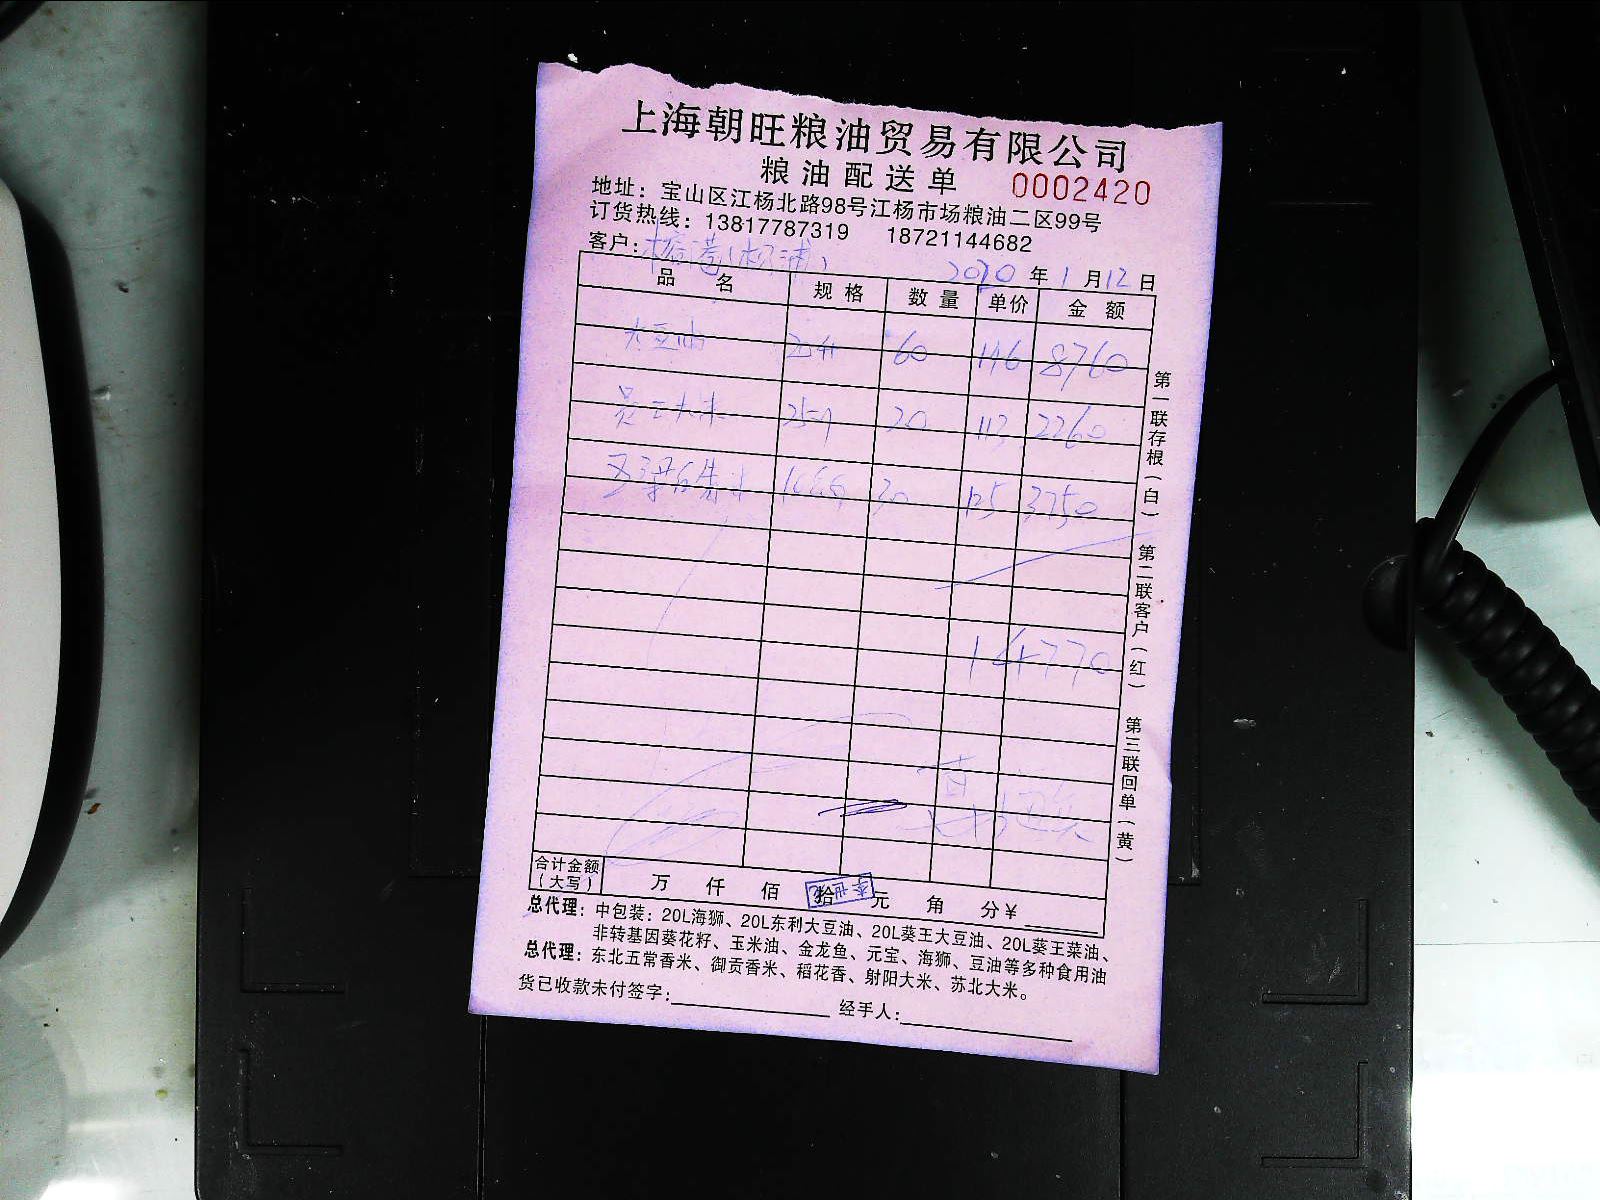 上海朝旺粮油贸易有限公司
粮油配送单 0002420
地址：宝山区江杨北路98号江杨市场粮油二区99号
订货热线：13817787319 18721144682
客户：港（杨浦） 2020 年 1 月 12 日
品名 规格 数量 单价 金额
大豆油 20升 60 146 8760
大米 20 113 2260
30 125 3750
14770
合计金额（大写） 万 仟 佰 拾 元 角 分￥
总代理：中包装：20L海狮、20L东利大豆油、20L葵王大豆油、20L葵王菜油、
非转基因葵花籽、玉米油、金龙鱼、元宝、海狮、豆油等多种食用油
总代理：东北五常香米、御贡香米、稻花香、射阳大米、苏北大米。
货已收款未付签字： 经手人：
第一联存根（白） 第二联客户（红） 第三联回单（黄）